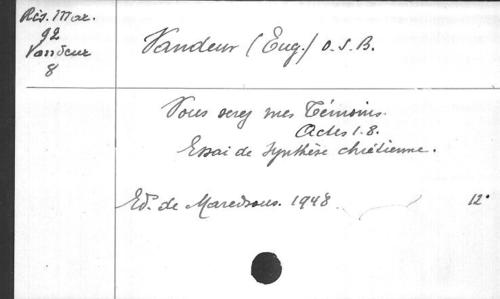 Ris. Mar.
92
Vandeur
8
Vandeur (Eug.) O.S.B.
Vous serez mes Témoins.
Actes 1-8.
Essai de synthèse chrétienne.
Ed. de Maredsous. 1948
12°